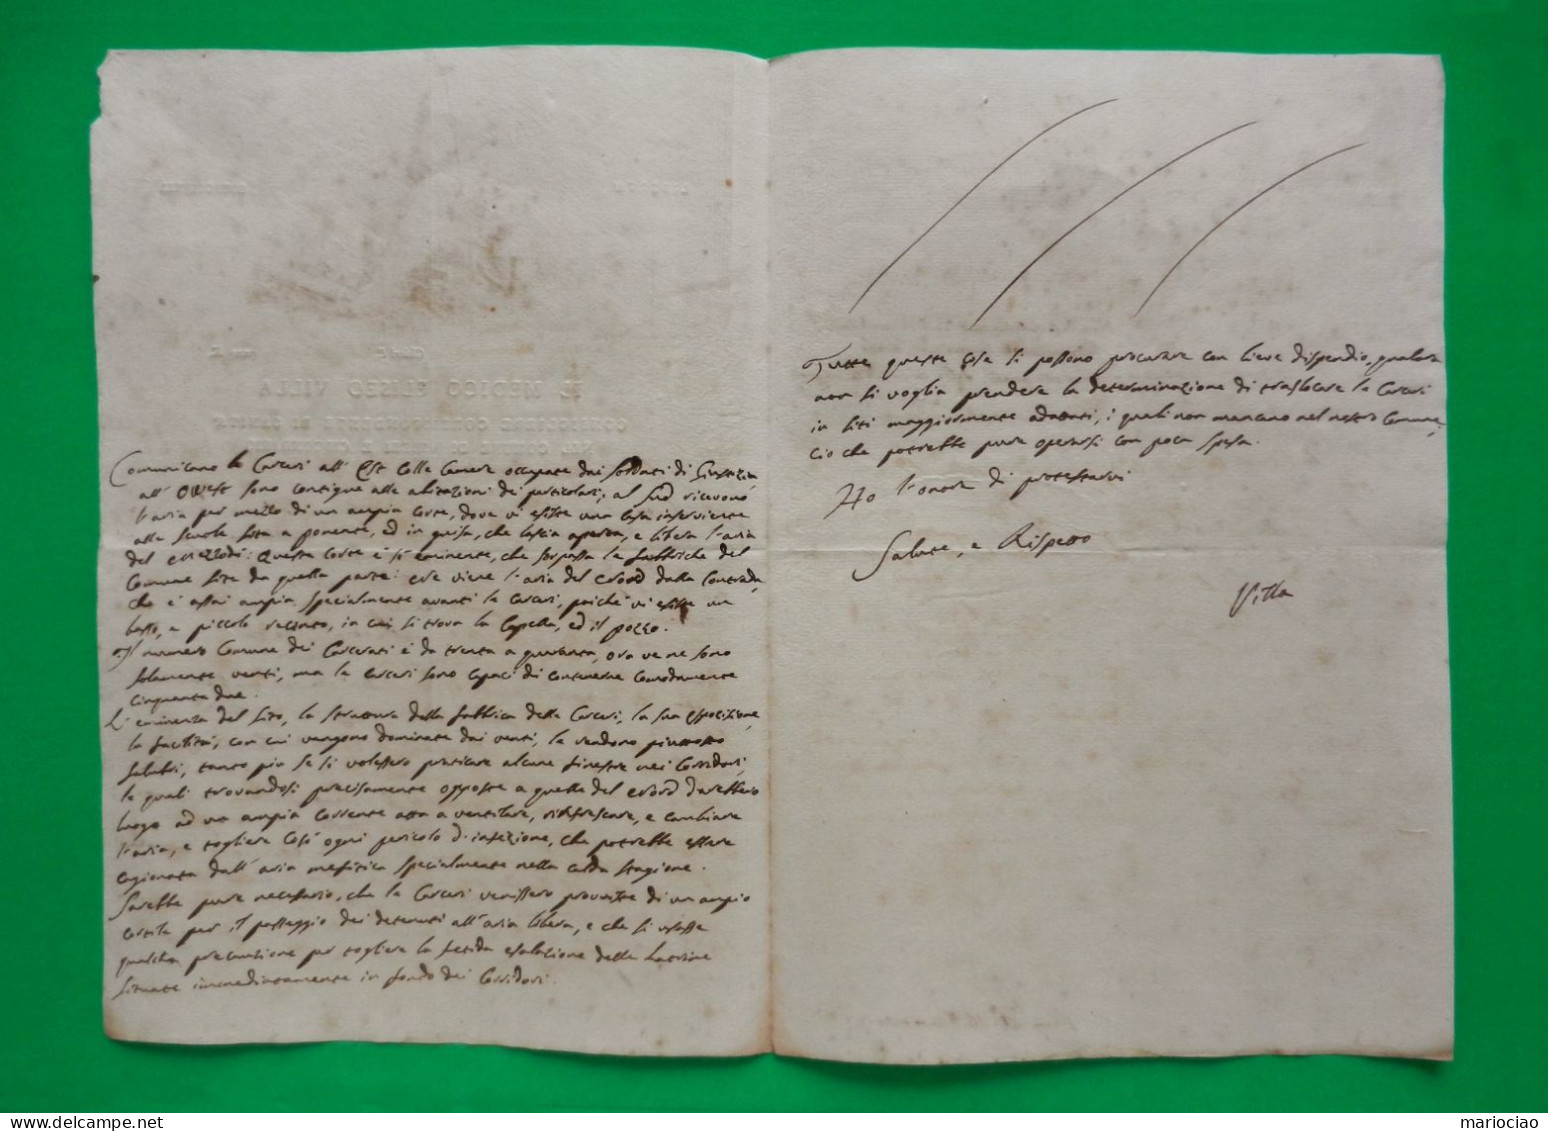 IL MEDICO ELISEO VILLA
Comunicano le Carceri all' Est colle Camere occupate dai Soldati di Giustizia,
all' Ovest sono contigue alle abitazioni dei particolari; al Sud ricevono
l'aria per mezzo di un ampia Corte, dove vi esiste una Casa inserviente
alle Scuole sita a ponente, ed in guisa, che lascia aperta, e libera l'aria
del mezzodì: Questa Corte è sì eminente, che sorpassa le fabbriche del
Comune site da quella parte: ove viene l'aria del Nord dalla Contrada,
che è assai ampia specialmente avanti le Carceri, poichè vi esiste un
basso, e piccolo recinto, in cui si trova la Capella, ed il pozzo.
Il numero Comune dei Carcerati è da trenta a quaranta, ora ve ne sono
solamente venti, ma le Carceri sono capaci di contenerne comodamente
cinquanta due.
L'eminenza del sito, la struttura della fabbrica delle Carceri, la sua esposizione,
la facilità, con cui vengono dominate dai venti, le rendono piuttosto
salubri, tanto più se si volessero praticare alcune finestre nei Corridori,
le quali trovandosi precisamente opposte a quelle del Nord darebbero
luogo ad un ampia corrente atta a ventilare, rinfrescare, e cambiare
l'aria, e togliere così ogni pericolo d'infezione, che potrebbe essere
cagionata dall' aria mefitica specialmente nella calda stagione.
Sarebbe pure necessario, che le Carceri venissero provviste di un ampio
cortile per il passeggio dei detenuti all' aria libera, e che si usasse
qualche precauzione per togliere la fetida esalazione delle Latrine
situate immediatamente in fondo dei Corridori.
Tutte queste cose si possono procurare con lieve dispendio, qualora
non si voglia prendere la determinazione di traslocare le Carceri
in siti maggiormente adattati, i quali non mancano nel nostro Comune,
ciò che potrebbe pure operarsi con poca spesa.
Ho l'onore di protestarvi
Salute, e Rispetto
Villa
mariociao
www.delcampe.net
mariociao